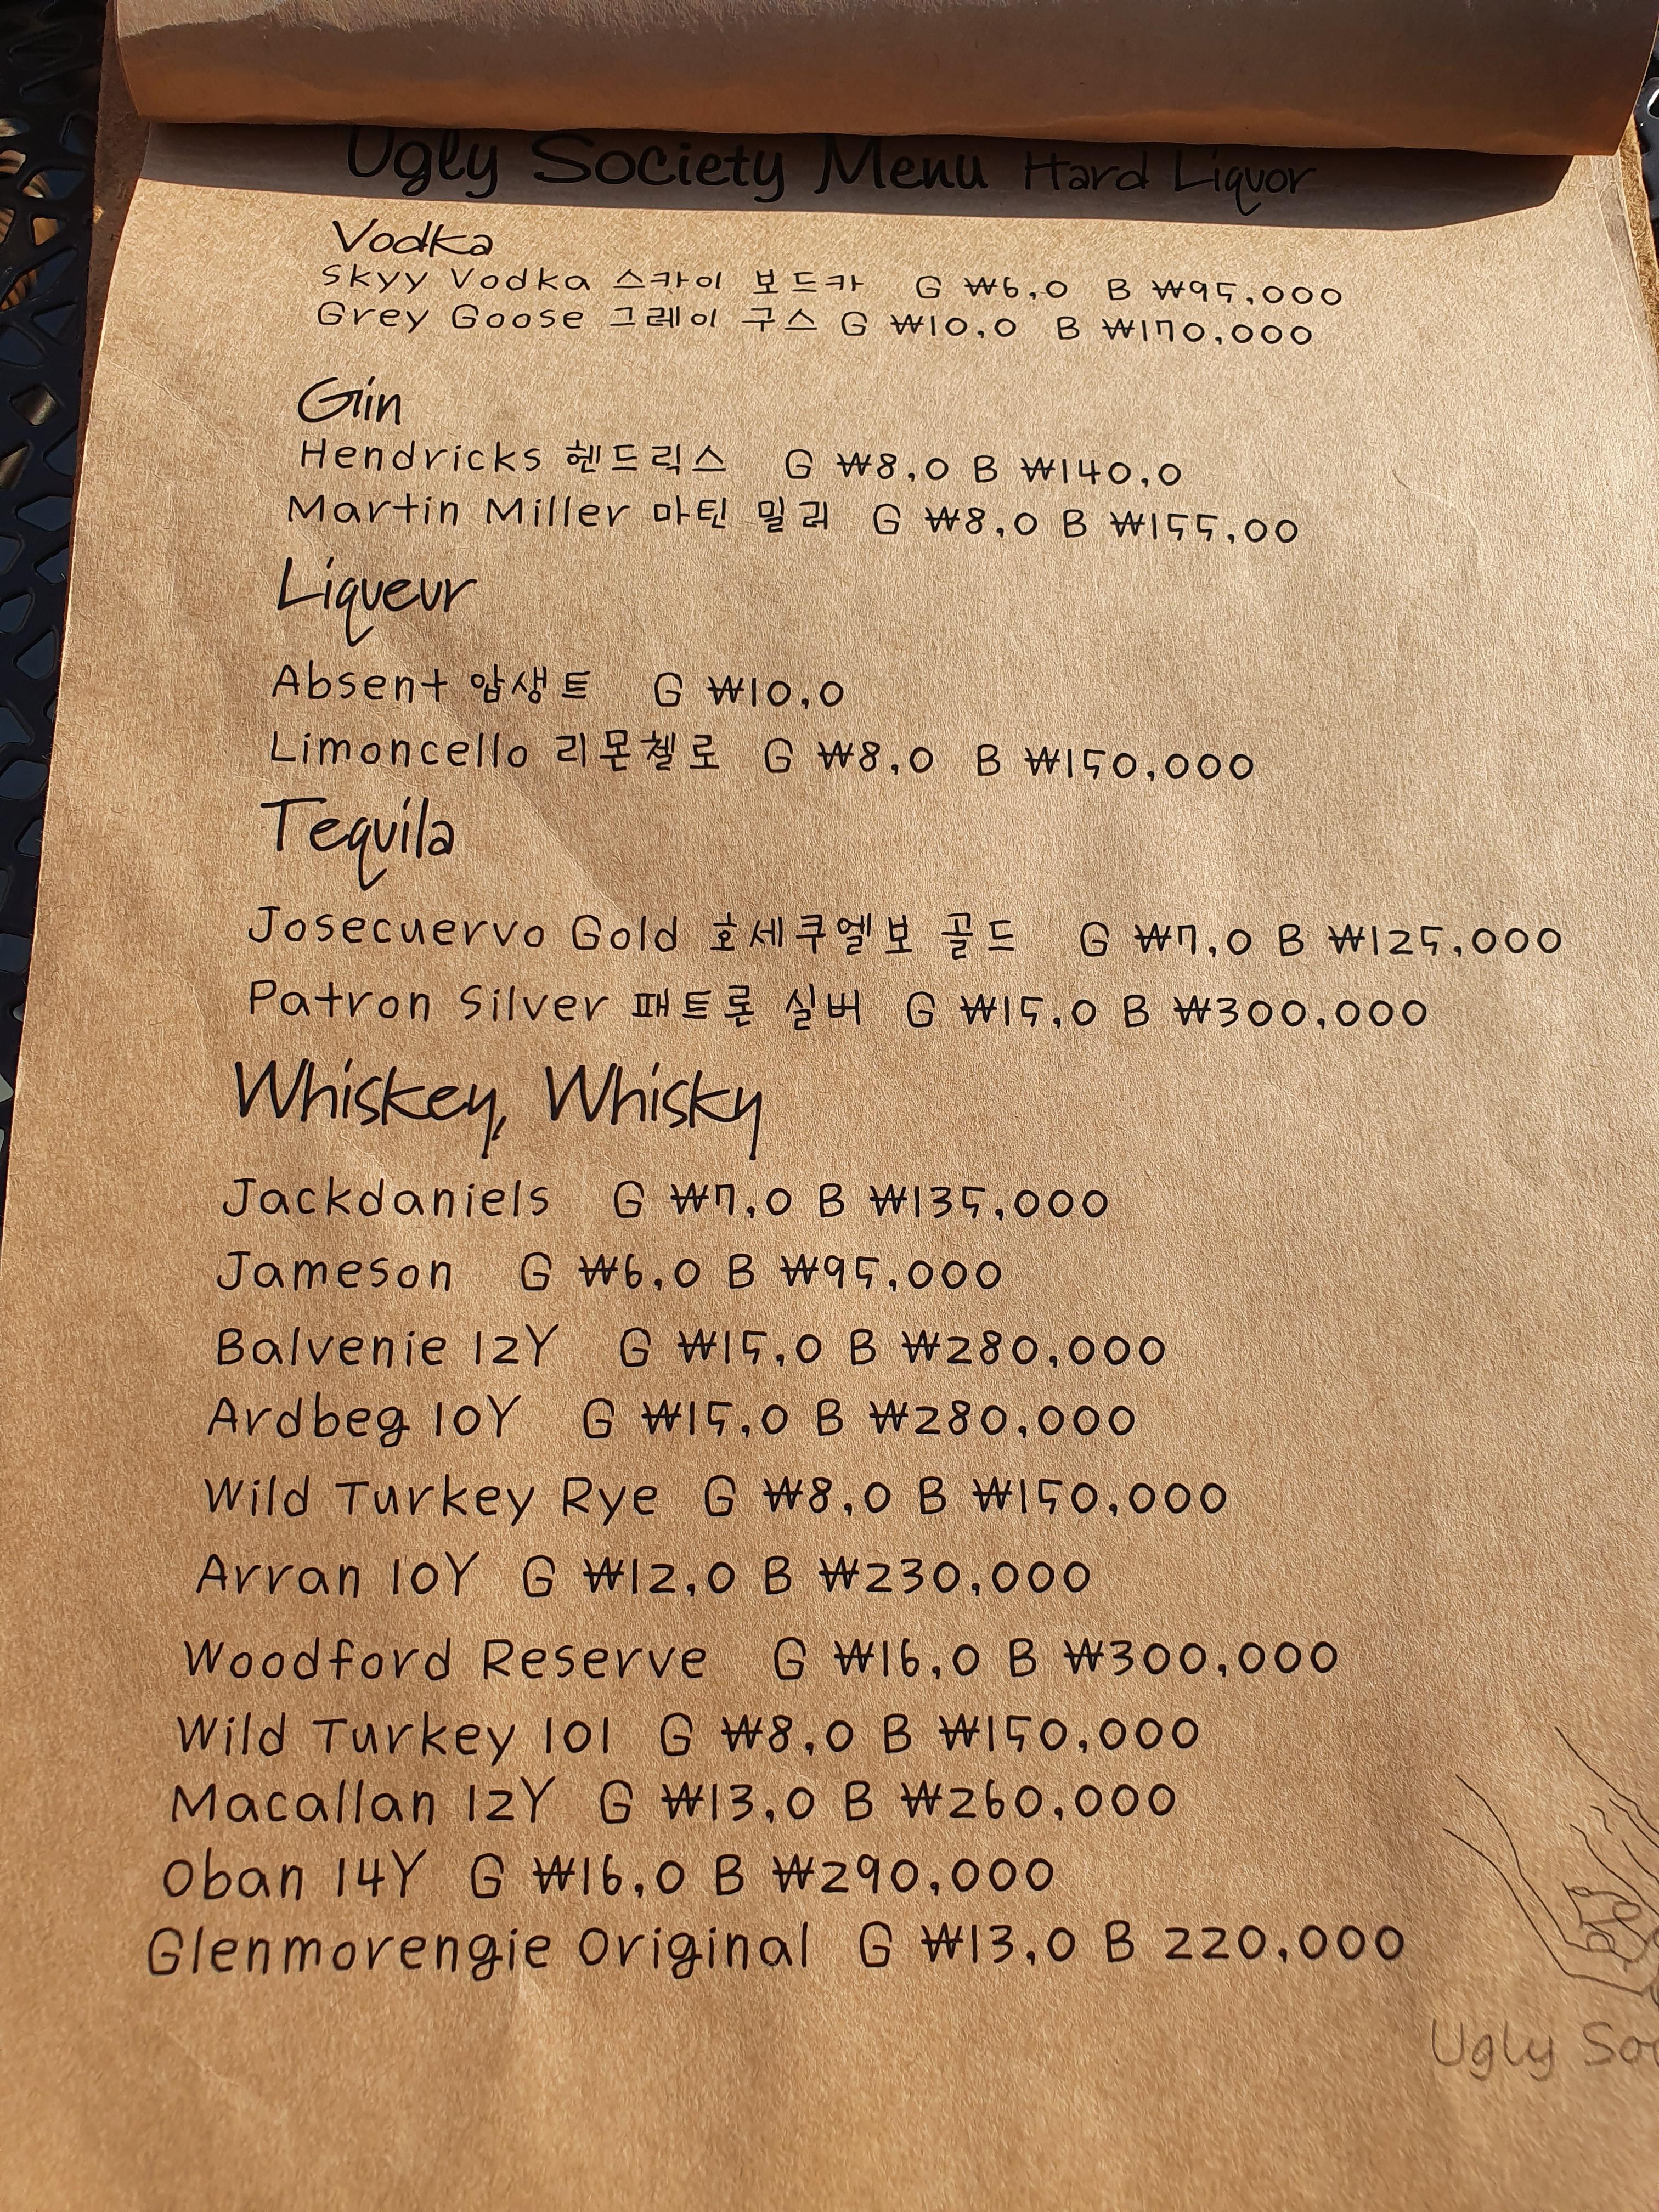 Ugly Society Menu Hard Liquor
Vodka
Skyy Vodka 스카이 보드카 G ₩6,0 B ₩95,000
Grey Goose 그레이 구스 G ₩10,0 B ₩170,000
Gin
Hendricks 헨드릭스 G ₩8,0 B ₩140,0
Martin Miller 마틴 밀러 G ₩8,0 B ₩155,00
Liqueur
Absent 압생트 G ₩10,0
Limoncello 리몬첼로 G ₩8,0 B ₩150,000
Tequila
Josecuervo Gold 호세쿠엘보 골드 G ₩7,0 B ₩125,000
Patron Silver 패트론 실버 G ₩15,0 B ₩300,000
Whiskey, Whisky
Jackdaniels G ₩7,0 B ₩135,000
Jameson G ₩6,0 B ₩95,000
Balvenie 12Y G ₩15,0 B ₩280,000
Ardbeg 10Y G ₩15,0 B ₩280,000
Wild Turkey Rye G ₩8,0 B ₩150,000
Arran 10Y G ₩12,0 B ₩230,000
Woodford Reserve G ₩16,0 B ₩300,000
Wild Turkey 101 G ₩8,0 B ₩150,000
Macallan 12Y G ₩13,0 B ₩260,000
Oban 14Y G ₩16,0 B ₩290,000
Glenmorengie Original G ₩13,0 B 220,000
Ugly